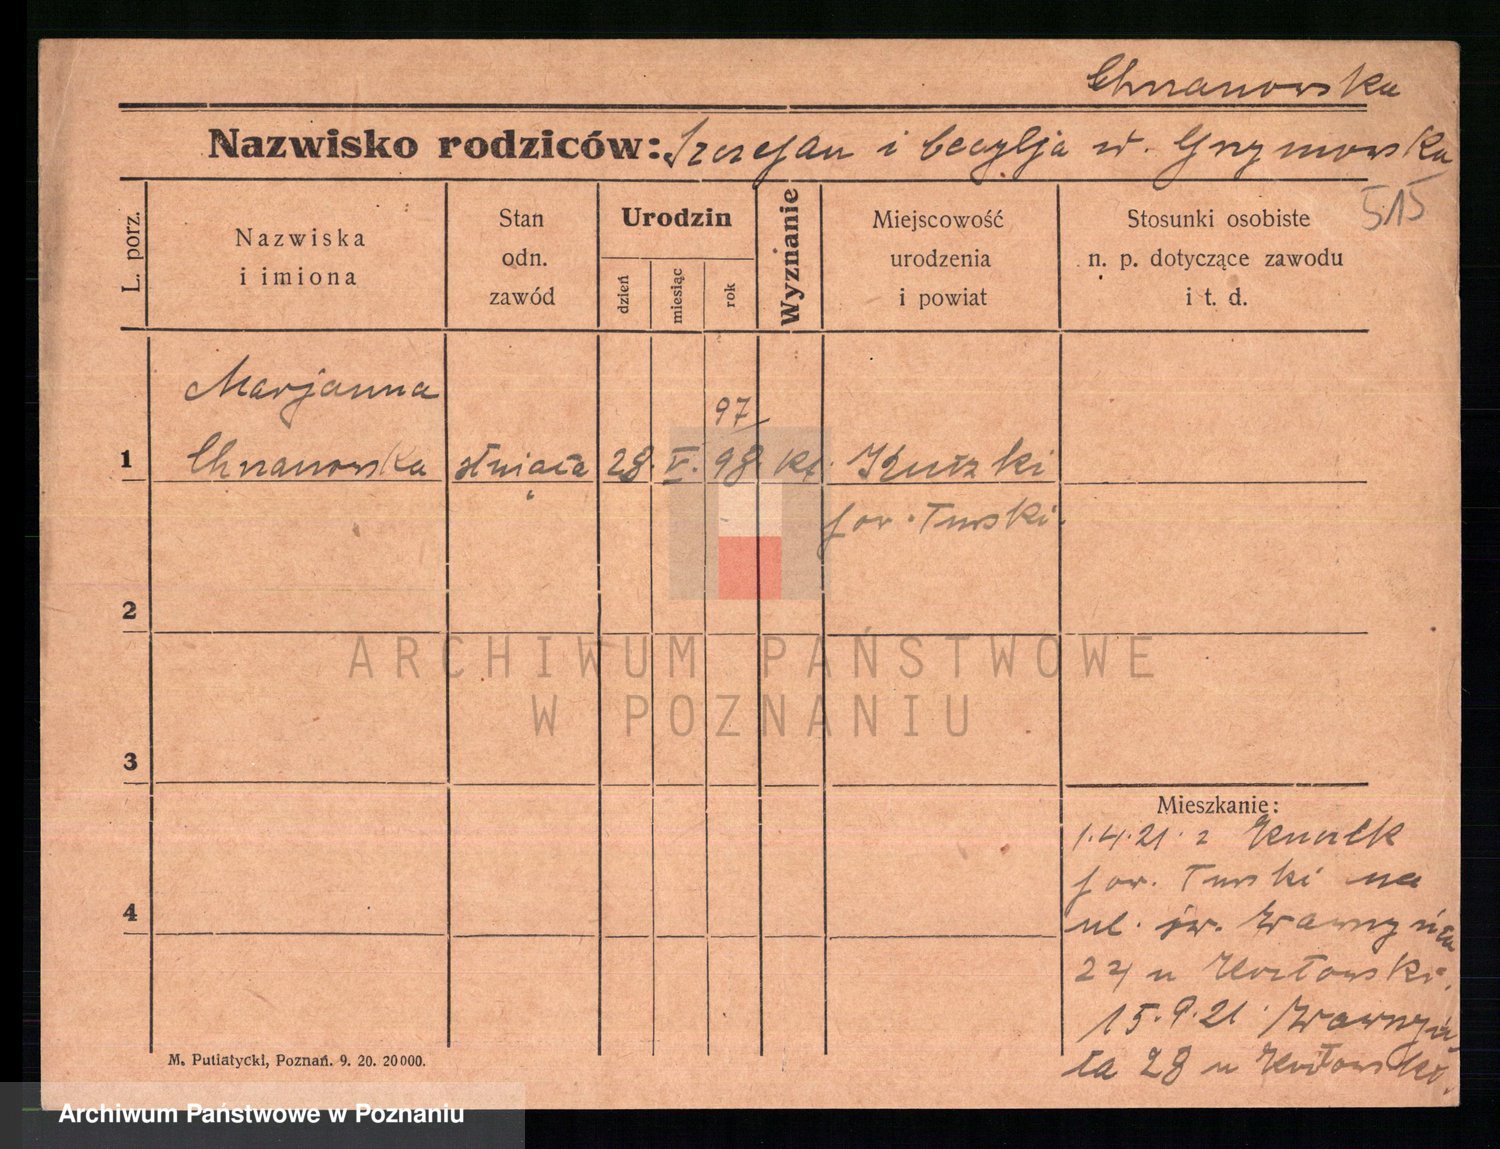 Chrzanowska
Nazwisko rodziców: Szczepan i Cecylja d. Grzymowska
515
L. porz.
Nazwiska
i imiona
Stan
odn.
zawód
Urodzin
dzień
miesiąc
rok
Wyznanie
Miejscowość
urodzenia
i powiat
Stosunki osobiste
n. p. dotyczące zawodu
i t. d.
Marjanna
97
1 Chrzanowska 28. V. 98 kt.
pow. Turski.
2
3
4
Mieszkanie:
1.4.21. z
pow. Turski na
ul. św. Wawrzyńca
u Kozłowski.
15.9.21. Wawrzyń
ca 28 u Kozłowski.
M. Putiatycki, Poznań. 9. 20. 20000.
ARCHIWUM PAŃSTWOWE
W POZNANIU
Archiwum Państwowe w Poznaniu